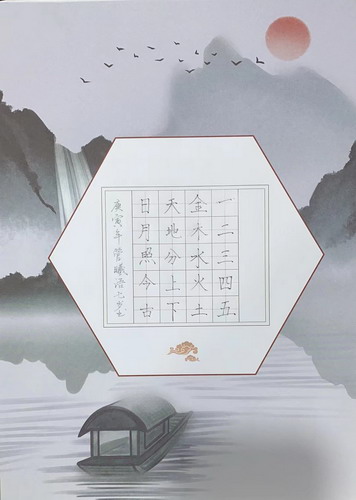 一二三四五
金木水火土
天地分上下
日月照今古
庚寅年